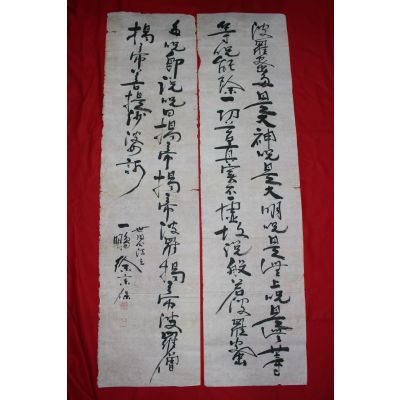 波羅蜜多是大神呪是大明呪是無上呪是無等
等呪能除一切苦真實不虛故說般若波羅蜜
多呪卽說呪曰揭帝揭帝波羅揭帝波羅僧
揭帝菩提娑婆訶
世界法王
一鵬 徐京保